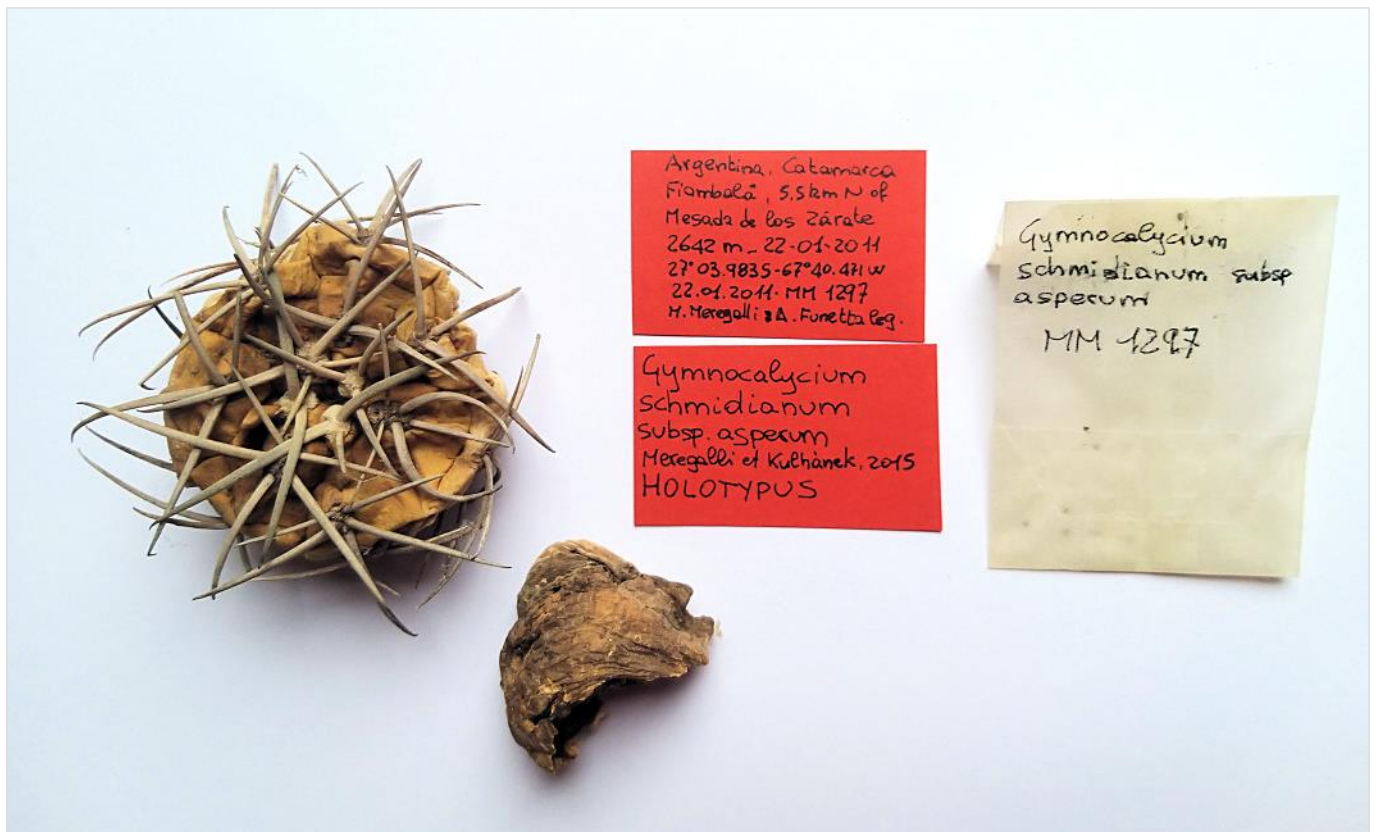 Argentina, Catamarca
Fiambalá, 5,5 km N of
Mesada de los Zárate
2642 m - 22-01-2011
27°03.983S-67°40.471W
22.01.2011. MM 1297
M. Meregalli & A. Funetta leg.
Gymnocalycium
schmidianum
subsp. asperum
Meregalli et Kulhànek, 2015
HOLOTYPUS
Gymnocalycium
schmidianum subsp
asperum
MM 1297